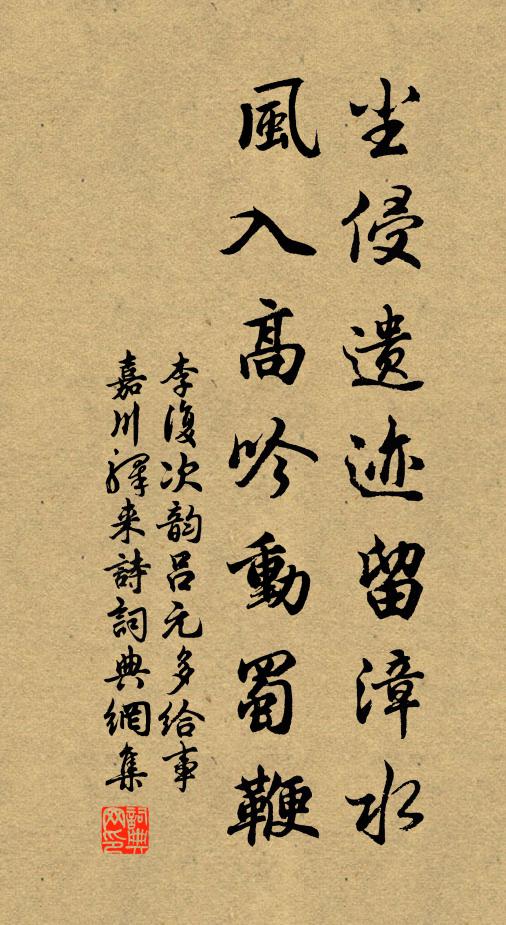 尘侵遗迹留漳水
風入髙吟動蜀鞭
李復次韵吕元多給事
嘉川驛来詩詞典網集
詞典网印